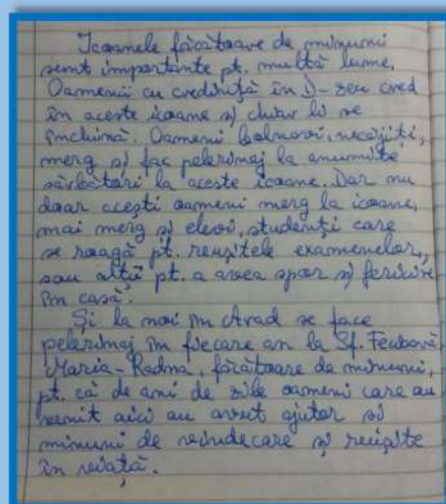 Icoanele făcătoare de minuni
sunt importante pt. multă lume.
Oamenii cu credință în D-zeu cred
în aceste icoane și chiar li se
închină. Oameni bolnavi, necăjiți,
merg și fac pelerinaj la anumite
sărbători la aceste icoane. Dar nu
doar acești oameni merg la icoane,
mai merg și elevi, studenți care
se roagă pt. reușitele examenelor,
sau alții pt. a avea spor și fericire
în casă.
Și la noi în Arad se face
pelerinaj în fiecare an la Sf. Fecioară
Maria-Radna, făcătoare de minuni,
pt. că de ani de zile oameni care au
venit aici au avut ajutor și
minuni de vindecare și reușite
în viață.